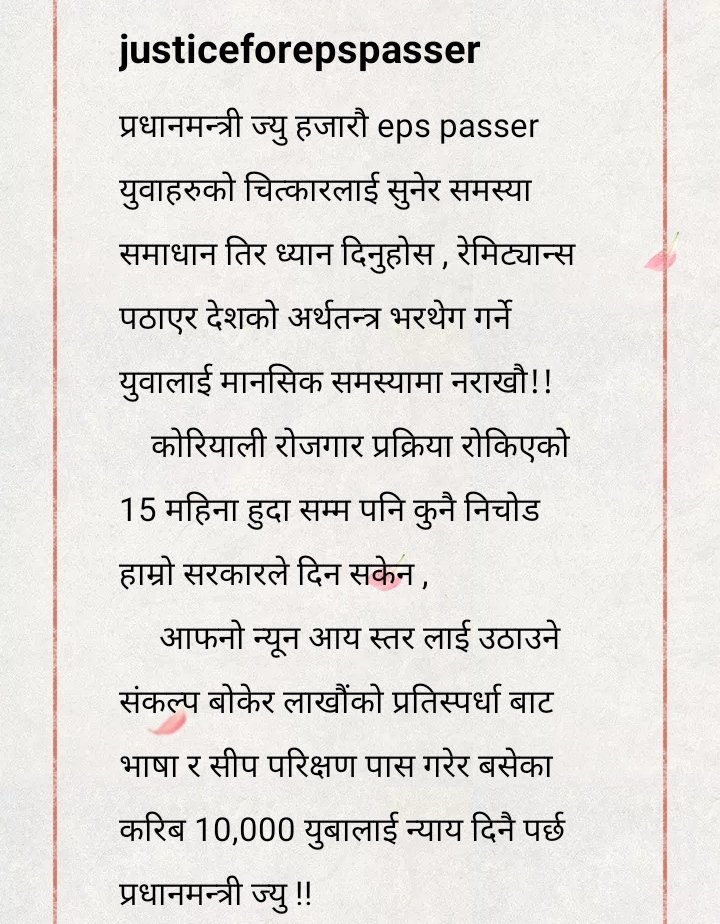 justiceforepspasser
प्रधानमन्त्री ज्यु हजारौ eps passer
युवाहरुको चित्कारलाई सुनेर समस्या
समाधान तिर ध्यान दिनुहोस , रेमिट्यान्स
पठाएर देशको अर्थतन्त्र भरथेग गर्ने
युवालाई मानसिक समस्यामा नराखौ!!
कोरियाली रोजगार प्रक्रिया रोकिएको
15 महिना हुदा सम्म पनि कुनै निचोड
हाम्रो सरकारले दिन सकेन ,
आफनो न्यून आय स्तर लाई उठाउने
संकल्प बोकेर लाखौंको प्रतिस्पर्धा बाट
भाषा र सीप परिक्षण पास गरेर बसेका
करिब 10,000 युबालाई न्याय दिनै पर्छ
प्रधानमन्त्री ज्यु !!